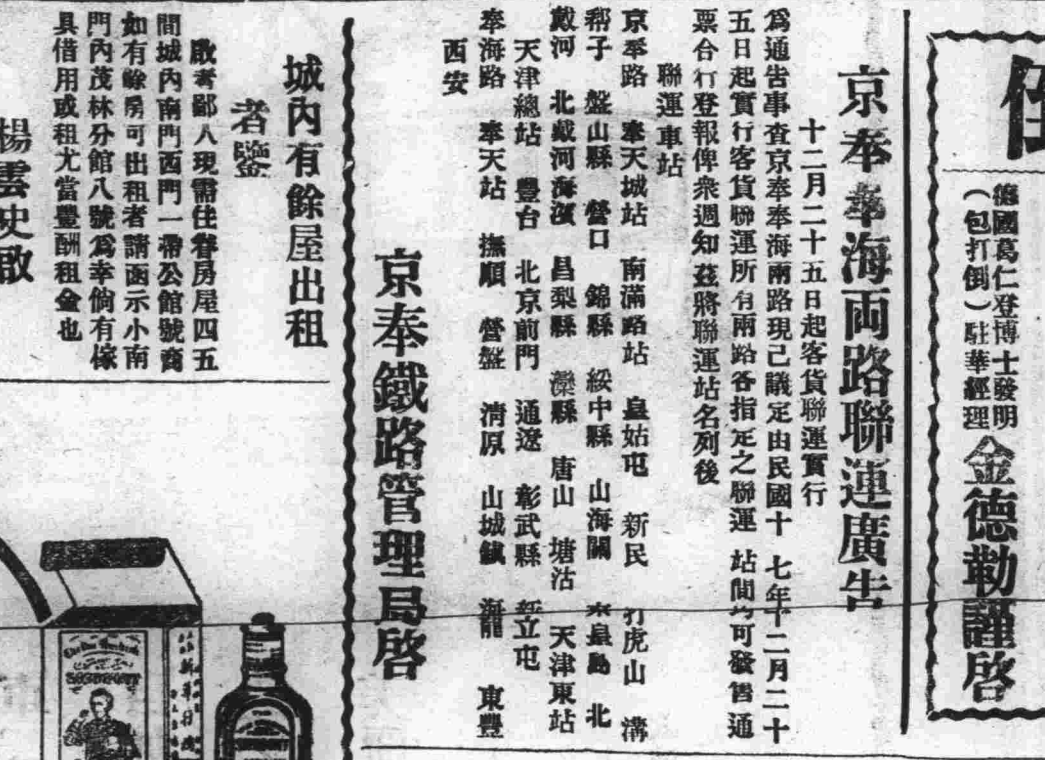 德國葛仁登博士發明
(包打倒)駐華經理
金德勒謹啓
京奉奉海両路聯運廣告
十二月二十五日起客貨聯運實行
爲通告事查京奉奉海兩路現己議定由民國十七年十二月二十
五日起實行客貨聯運所有兩路各指定之聯運站間均可發售通
票合行登報俾衆週知茲將聯運站名列後
聯運車站
京奉路 奉天城站 南滿路站 皇姑屯 新民 打虎山 溝
幇子 盤山縣 營口 錦縣 綏中縣 山海關 秦皇島 北
戴河 北戴河海濱 昌梨縣 灤縣 唐山 塘沽 天津東站
天津總站 豐台 北京前門 通遼 彰武縣 新立屯
奉海路 奉天站 撫順 營盤 清原 山城鎮 海龍 東豐
西安
京奉鐵路管理局啓
城內有餘屋出租
者鑒
啟者鄙人現需住眷房屋四五
間城內南門西門一帶公館號商
如有餘房可出租者請函示小南
門內茂林分館八號爲幸倘有傢
具借用或租尤當豐酬租金也
楊雲史啟